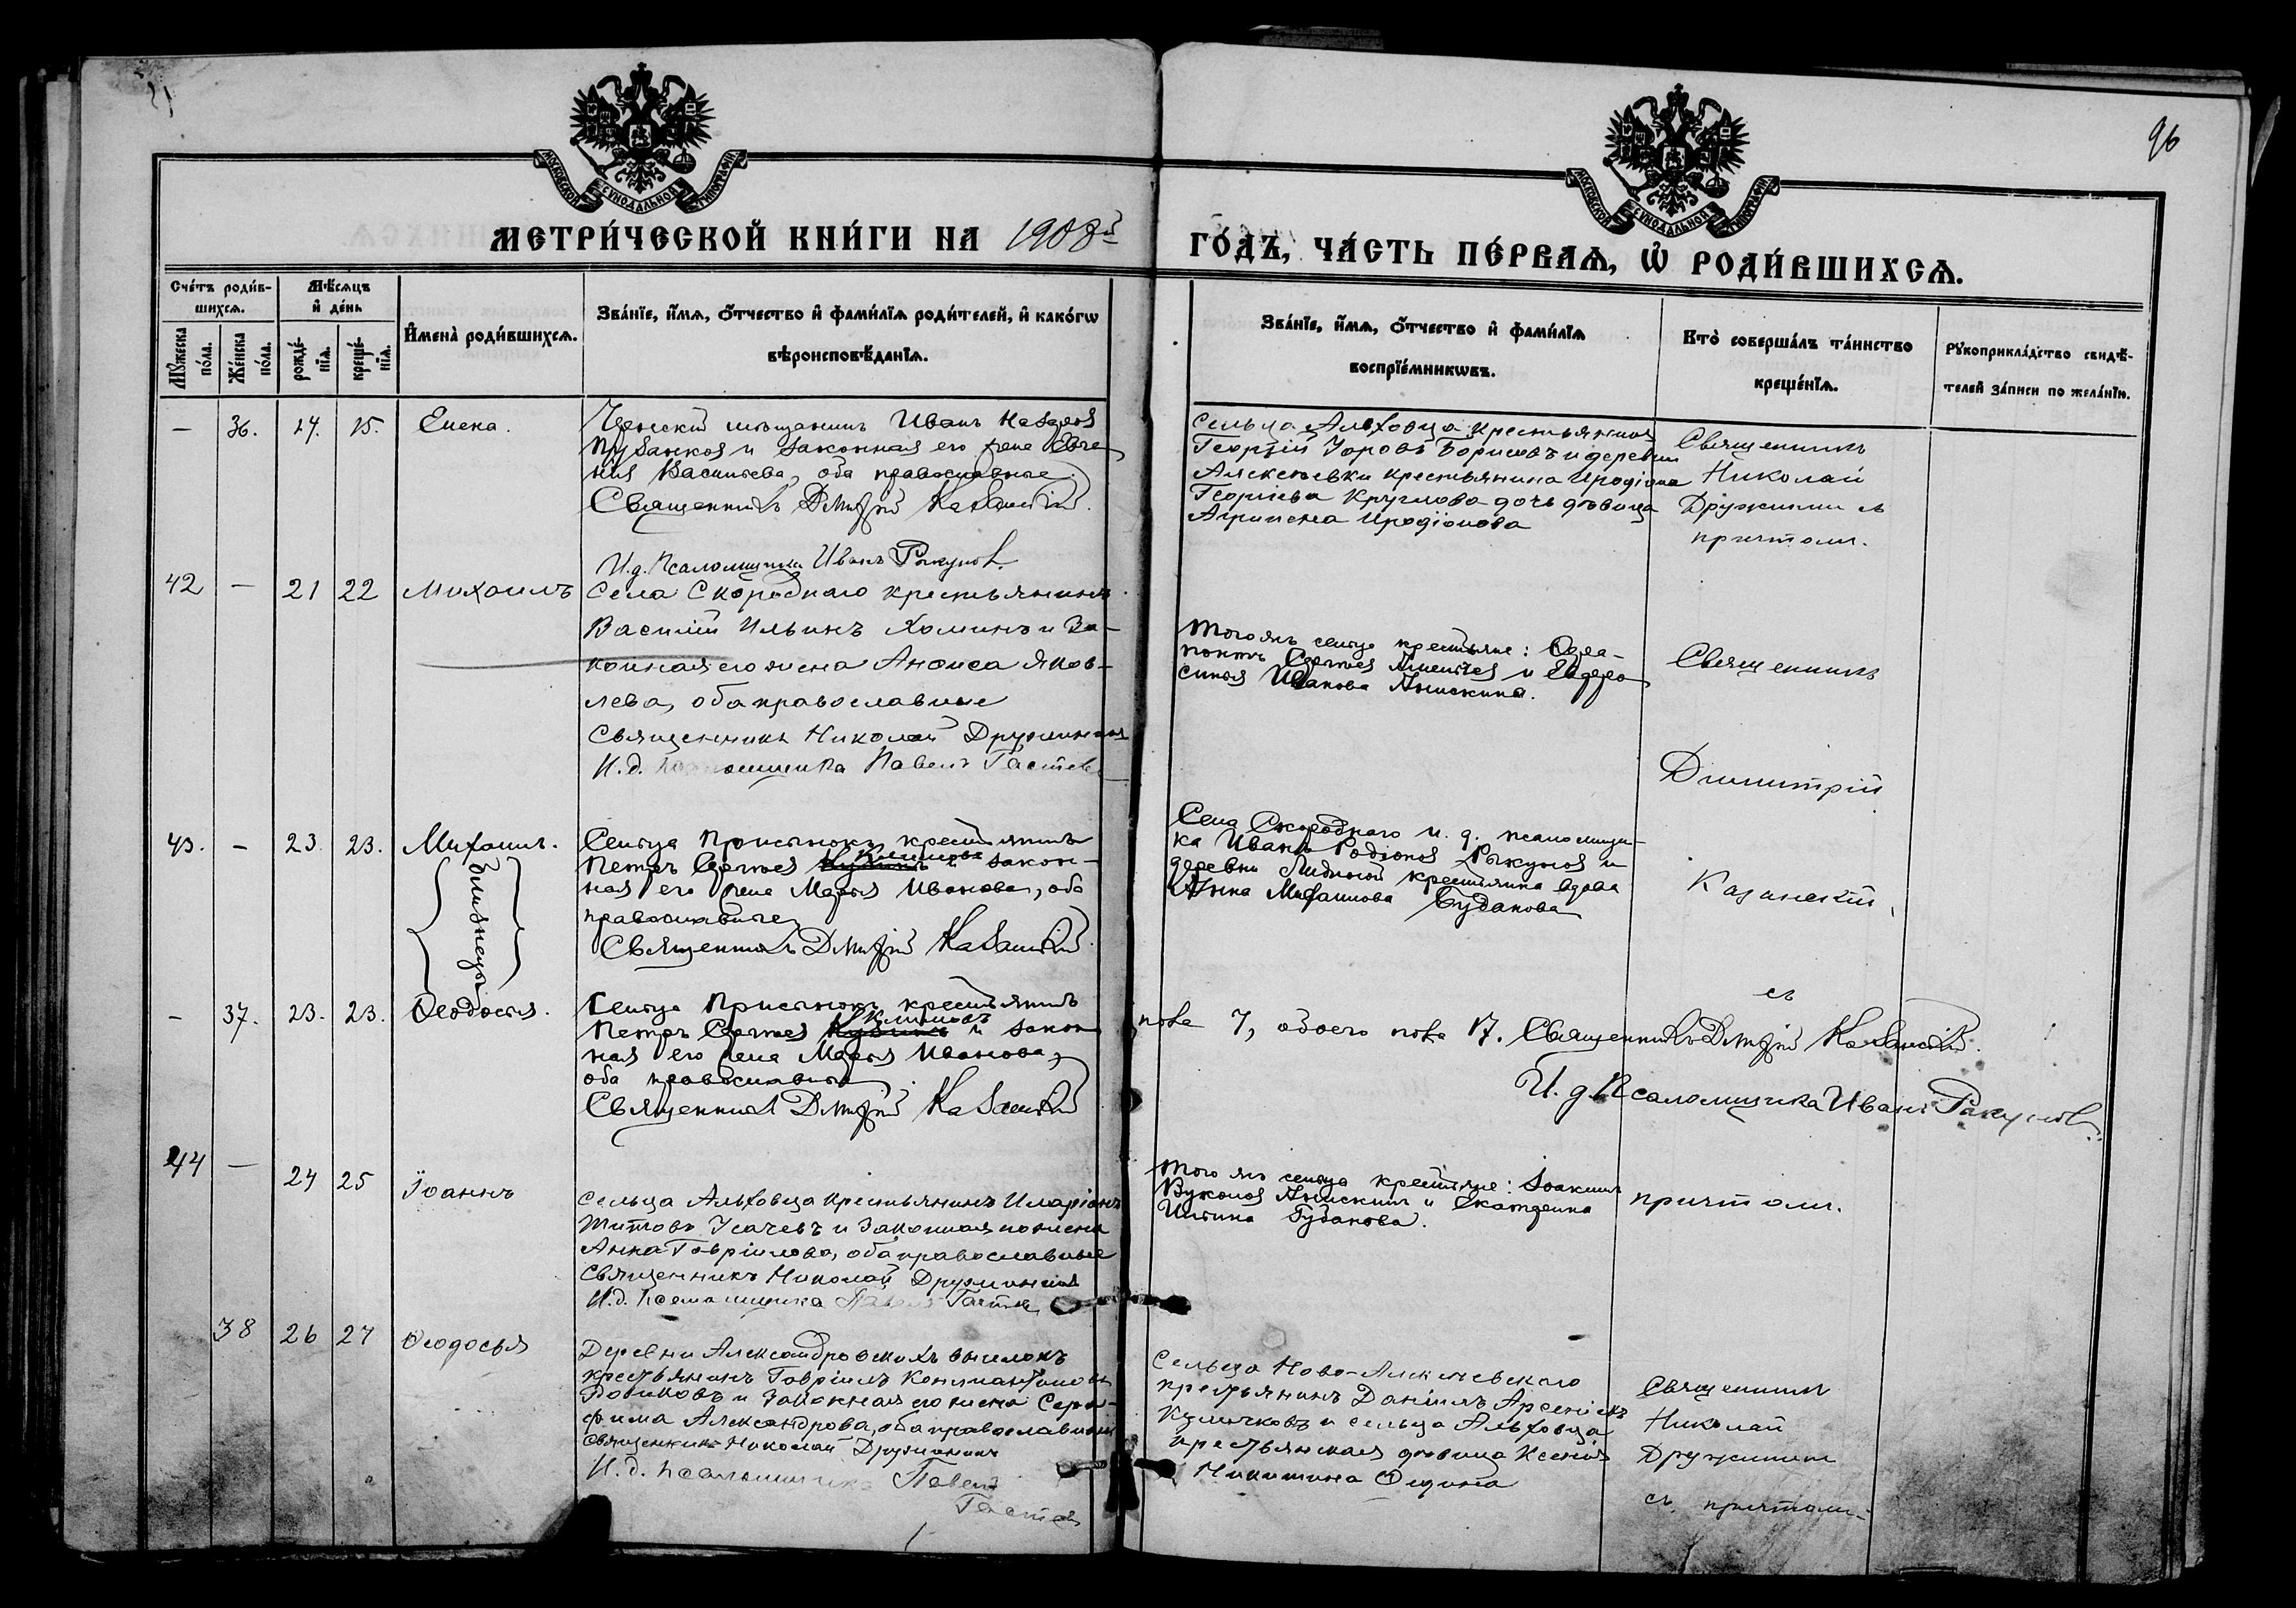 96
МОСКОВСКОЙ СѴНОДАЛЬНОЙ ТИПОГРАФІИ
МОСКОВСКОЙ СѴНОДАЛЬНОЙ ТИПОГРАФІИ
МЕТРИ́ЧЕСКОЙ КНИ́ГИ НА 1908й
ГО́ДЪ, ЧА́СТЬ ПЕ́РВАѦ, Ѡ҆ РОДИ́ВШИХСѦ.
Сче́тъ роди́в-
шихсѧ.
Мѣ́сѧцъ
и҆ де́нь
Мꙋ́жеска по́ла.
Же́нска по́ла.
рожде́-
нїѧ.
креще́-
нїѧ.
И҆мена̀ роди́вшихсѧ.
Зва́нїе, и҆́мѧ, ѻ҆́тчество и҆ фами́лїѧ роди́телей, и҆ како́гѡ
вѣроисповѣ́данїѧ.
Зва́нїе, и҆́мѧ, ѻ҆́тчество и҆ фами́лїѧ
воспрїе́мникѡвъ.
Кто̀ соверша́лъ та́инство
креще́нїѧ.
Рꙋкоприкла́дство свидѣ́-
телей за́писи по жела́нїю.
— 36. 14. 15. Елена.
мѣщанинъ Иванъ
и законная его жена Евге-
нія Васильева, оба православные.
Священникъ Дмитрій Казанскій.
И.д. Псаломщика Иванъ Рыкунов.
Сельца Альховца крестьянинъ
Георгій Борисовъ и деревни
Алексѣевки крестьянина Иродіона
Георгіева Круглова дочь дѣвица
Агрипена Иродіонова
Священникъ
Николай
Дружининъ съ
причтомъ.
42 — 21 22 Михаилъ
Села Скороднаго крестьянинъ
Василій Ильинъ Хоминъ и За-
конная его жена Анфиса Яков-
лева, оба православные
Священникъ Николай Дружининъ
И.д. Псаломщика Павелъ Гастев
Того же сельца крестьяне:
Сергѣев и Евдо-
Иванова Анискина.
Священникъ
Димитрій
43. — 23. 23. Михаил.
близнецы
Сельца Присынокъ крестьянинъ
Петръ Сергѣев Климовъ и закон-
ная его жена Марья Иванова, оба
православные
Священникъ Дмитрій Казанскій.
Села Скороднаго и. д. псаломщи-
ка Иванъ Родіонов Рыкунов и
деревни крестьянка вдова
Анна Михаилова Буданова
Казанскій
— 37. 23. 23. Ѳеодосія.
Сельца Присынокъ крестьянинъ
Петръ Сергѣев Климовъ и закон-
ная его жена Марья Иванова,
оба православные.
Священникъ Дмитрій Казанскій
съ
пола 7, обоего пола 17. Священникъ Дмитрій Казанскій.
И. д. Псаломщика Иванъ Рыкунов.
44 — 24 25 Іоаннъ
Сельца Альховца крестьянинъ Иларіонъ
Титовъ Усачевъ и Законная его жена
Анна Гавріилова, оба православные
Священникъ Николай Дружининъ
И.д. Псаломщика Павелъ Гастев
Того же сельца крестьяне: Іоакимъ
Вуколов Анискинъ и Екатерина
Ильина Губанова.
причтомъ.
38 26 27 Ѳеодосья
Деревни Александровскихъ выселокъ
крестьянинъ Гавріилъ Константиновъ
и Законная его жена Сера-
фима Александрова, оба православные
Священникъ Николай Дружининъ
И.д. Псаломщика Павелъ
Гастев
Сельца Ново-Алексѣевскаго
крестьянинъ Даніилъ Арсеніевъ
Куличковъ и сельца Альховца
крестьянская дѣвица Ксенія
Никитина
Священникъ
Николай
Дружининъ
съ причтомъ